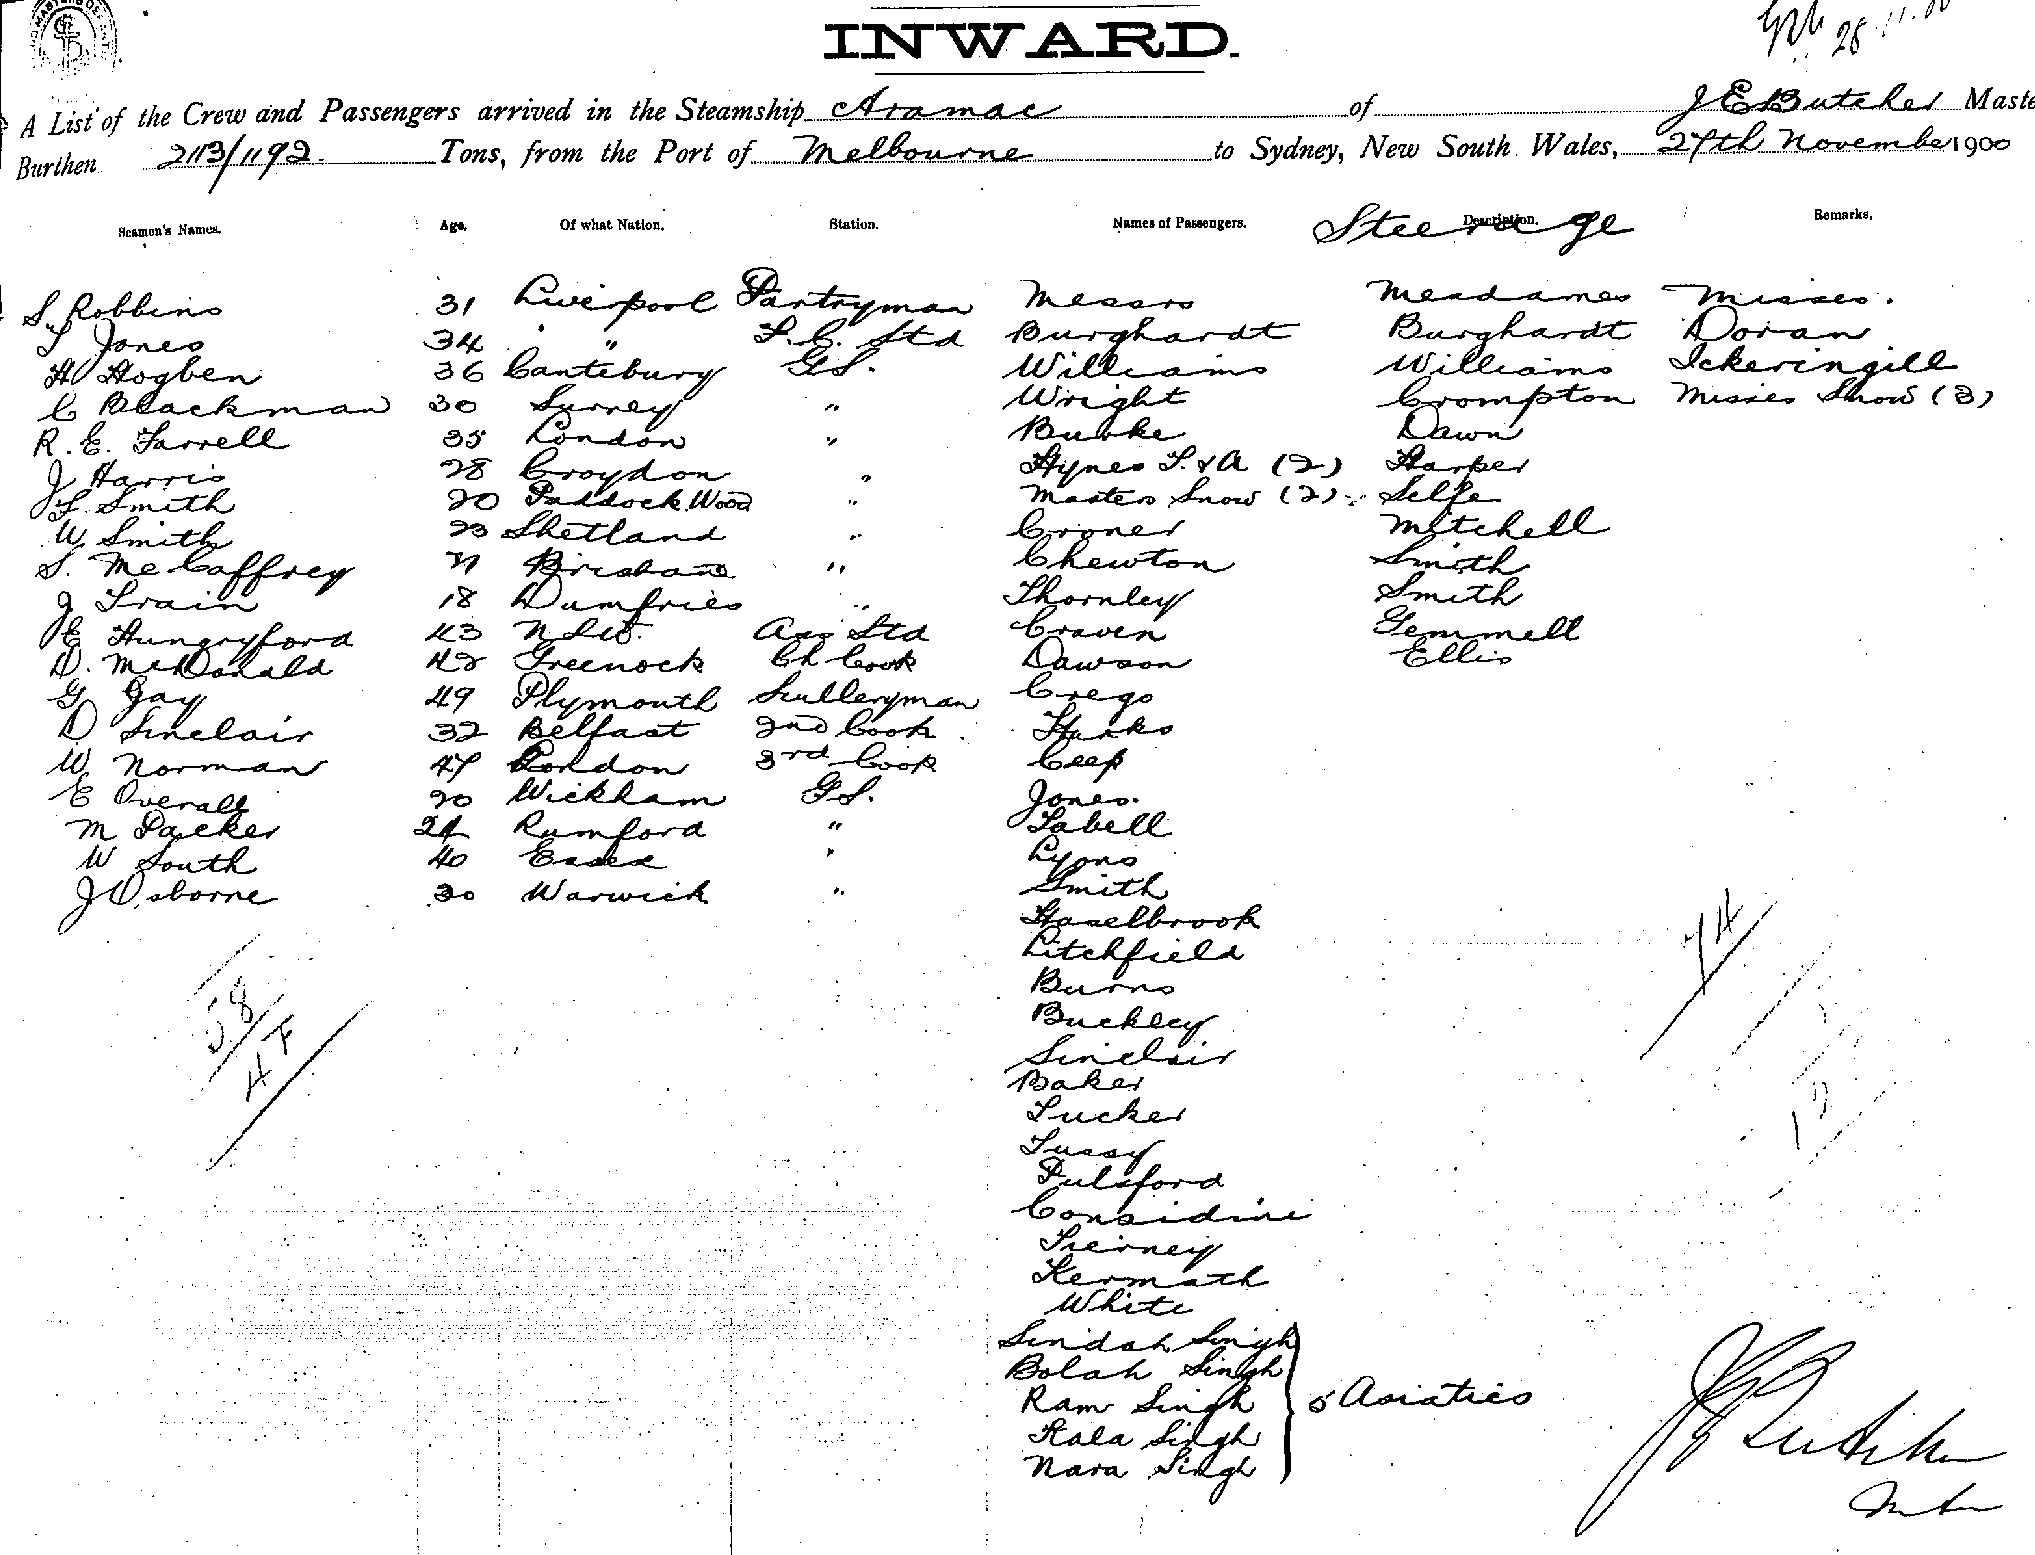 INWARD.
28.11.00
A List of the Crew and Passengers arrived in the Steamship Aramac of J E Butcher Maste
Burthen 2113/1192. Tons, from the Port of Melbourne to Sydney, New South Wales, 27th November 1900
Seamen's Names. Age. Of what Nation. Station. Names of Passengers. Description. Steerage Remarks.
S Robbins 31 Liverpool Pantryman Messrs Mesdames Misses.
Jones 34 " " F.C. Std Burghardt Burghardt Doran
H Hogben 36 Cantebury GS. Williams Williams Ickeringill
C Blackman 30 Surrey " Wright Crompton Misses Snow (3)
R. E. Farrell 35 London " Burke Dawn
J Harris 28 Croydon " Hynes T. & A (2) Harper
F. Smith 20 Paddock Wood " Masters Snow (2) Selfe
W Smith 23 Shetland " Croner Mitchell
S. McCaffrey 21 Brisbane " Chewton Smith
J Train 18 Dumfries " Thornley Smith
E Hungryford 43 N.S.W. Ass Std Craven Gemmell
D. McDonald 42 Greenock Ch Cook Dawson Ellis
G Gay 49 Plymouth Sculleryman Crego
D Sinclair 32 Belfast 2nd Cook Hanks
W Norman 47 London 3rd Cook Ceep
E Overall 20 Wickham GS. Jones.
M Packer 24 Rumford " Tabell
W South 40 Essex " Lyons
J Osborne 30 Warwick " Smith
Haselbrook
Litchfield
Burns
Buckley
Sinclair
Baker
Tucker
Tussy
Pulsford
Considine
Tierney
Kermath
White
Sindah Singh
Bolah Singh
Ram Singh 5 Asiatics
Kala Singh
Nara Singh
58
47
74
13
J E Butcher